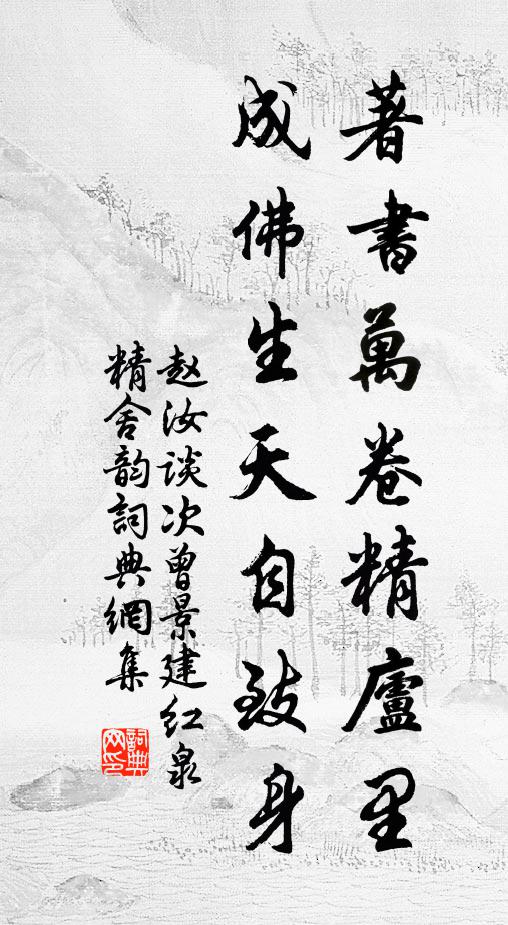 著書萬卷精廬里
成佛生天自致身
赵汝谈次曾景建红泉
精舍韵詞典網集
詞典網印